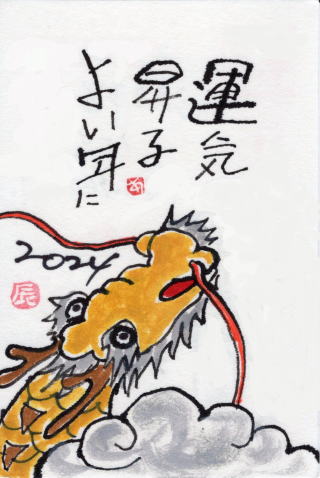 運気
昇子
よい年に
2024
辰